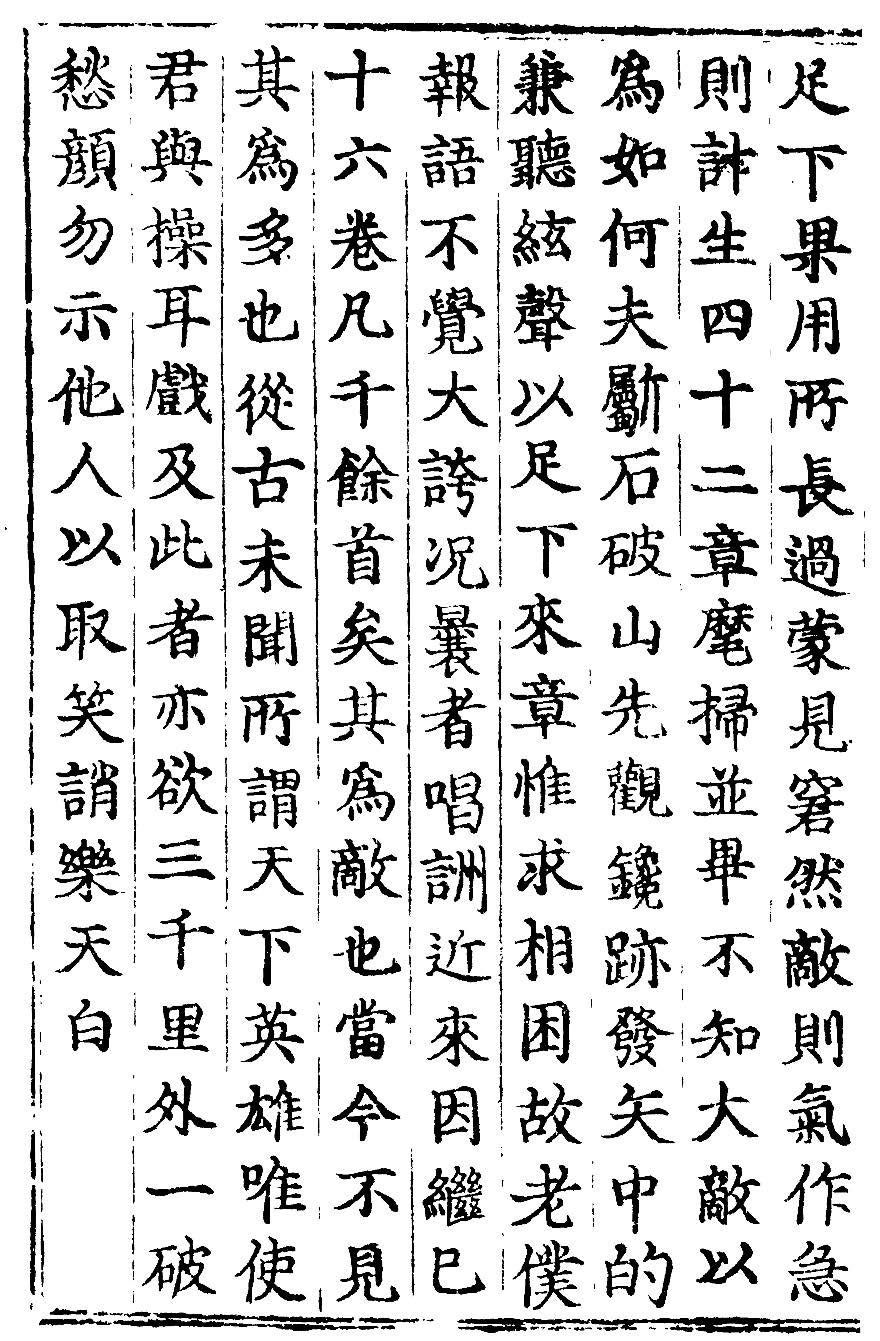 足下果用所長過蒙見窘然敵則氣作急
則計生四十二章麾掃並畢不知大敵以
爲如何夫斸石破山先觀鑱跡發矢中的
兼聽絃聲以足下來章惟求相困故老僕
報語不覺大誇況曩者唱詶近來因繼巳
十六卷凡千餘首矣其爲敵也當今不見
其爲多也從古未聞所謂天下英雄唯使
君與操耳戲及此者亦欲三千里外一破
愁顔勿示他人以取笑誚樂天白